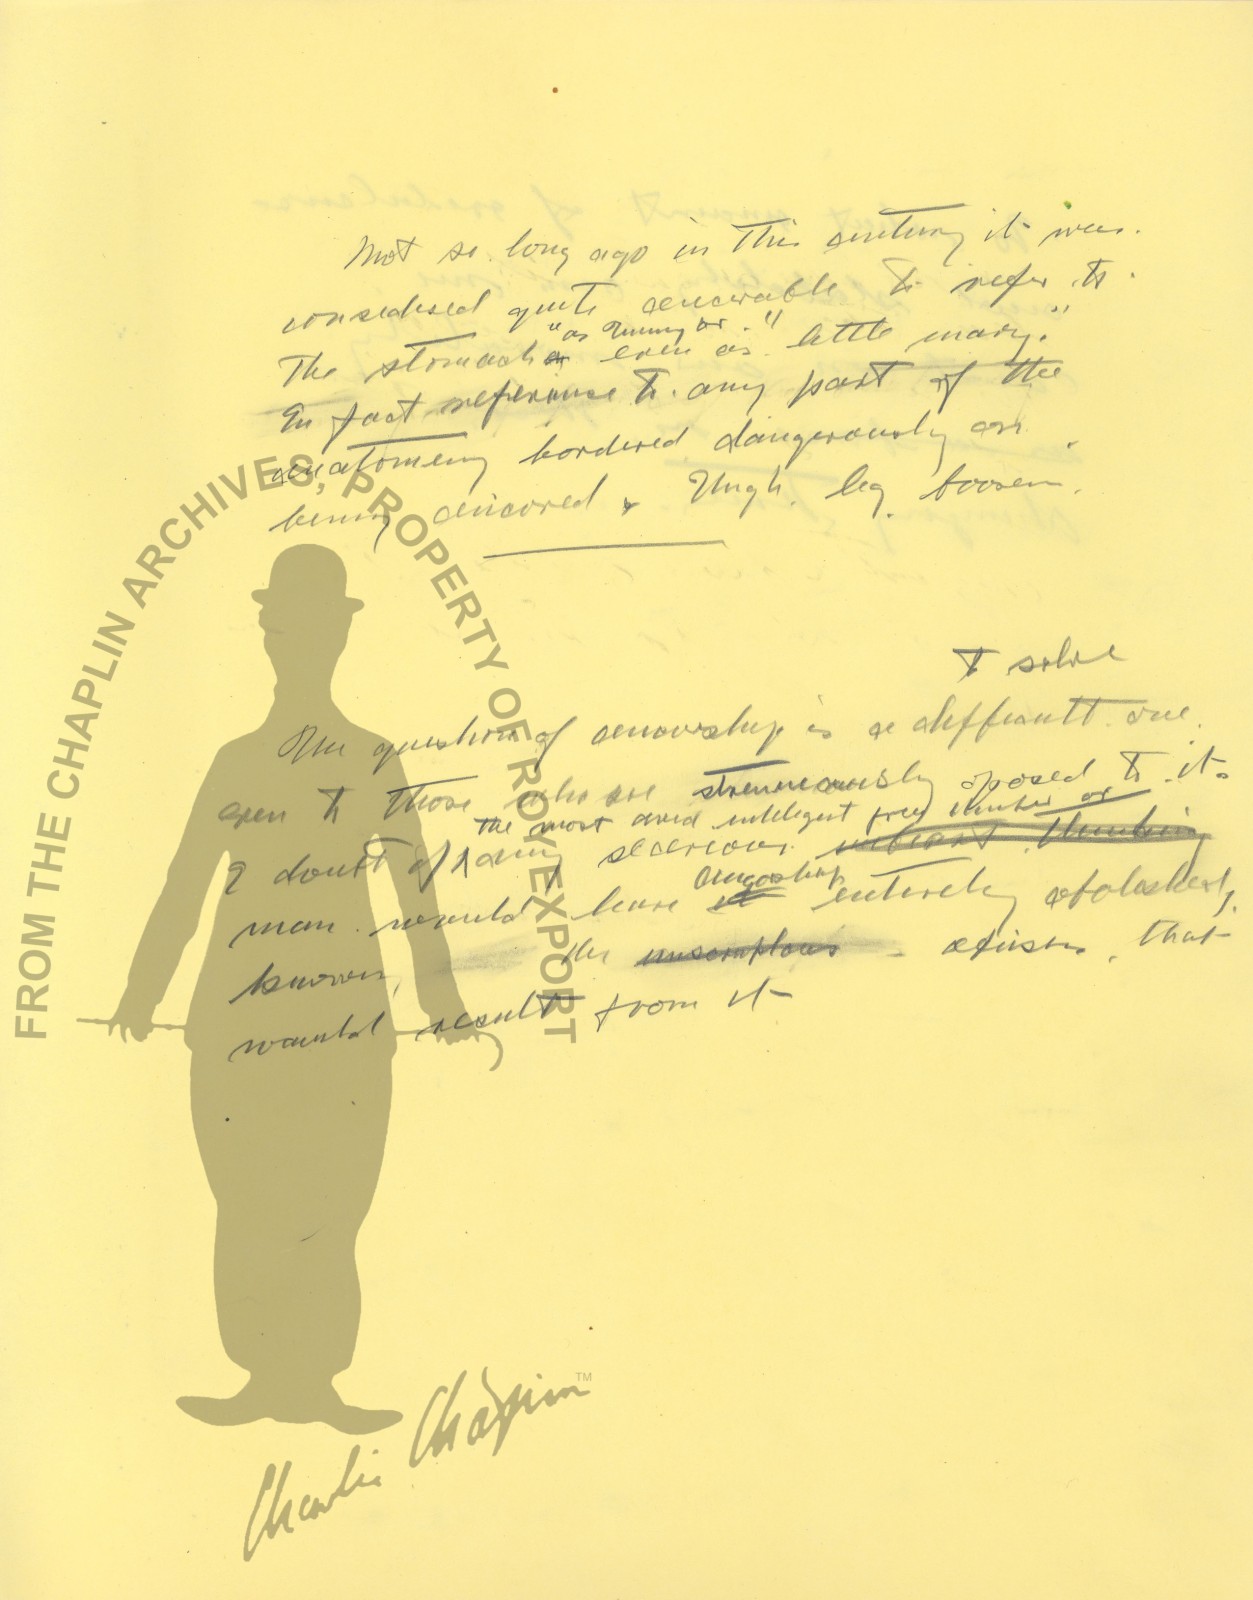 Not so long ago in this century it was
considered quite censorable to refer to
"as Tummy or "
The stomach or even as "little mary."
In fact reference to any part of the
anatomeny bordered dangerously on
being censored Thigh, leg, bosom.
to solve
The question of censorship is a difficult one
even to those who are strenuously oposed to it.
the most avid intelegent free thinker or
I doubt if any seareous thinking
censorship
man would have it entirely abolished,
knowing, the unscruplous abuses, that
would result from it
FROM THE CHAPLIN ARCHIVES, PROPERTY OF ROY EXPORT
Charlie Chaplin™